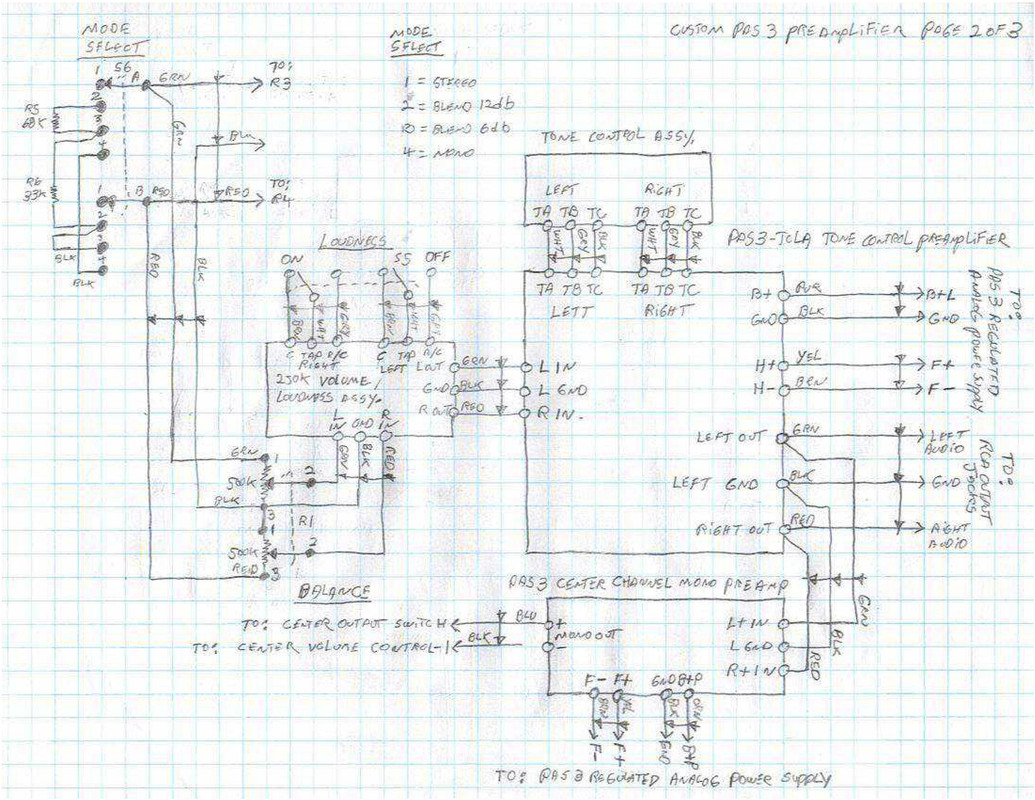 CUSTOM PAS 3 PREAMPLIFIER PAGE 2 OF 3
MODE
SELECT
S6
1
A
GRN
TO:
R3
2
3
4
R5
68K
GRN
BLK
R6
33K
1
B
RED
RED
TO:
R4
2
3
4
BLK
BLK
RED
BLK
MODE
SELECT
1 = STEREO
2 = BLEND 12db
3 = BLEND 6db
4 = MONO
LOUDNESS
ON
S5
OFF
BRN
WHT
GRY
BRN
WHT
GRY
C TAP R/C
RIGHT
C TAP R/C
LEFT
250K VOLUME/
LOUDNESS ASSY.
L OUT
GRN
GND
BLK
R OUT
RED
L
IN
GND
R
IN
GRN
BLK
RED
GRN
1
500K
2
BLK
3
1
R1
500K
2
RED
3
BALANCE
TONE CONTROL ASSY.
LEFT
RIGHT
TA TB TC
TA TB TC
WHT
GRY
BLK
WHT
GRY
BLK
TA TB TC
TA TB TC
LEFT
RIGHT
PAS3-TCLA TONE CONTROL PREAMPLIFIER
L IN
L GND
R IN.
B+
B+L
GND
BLK
GND
H+
YEL
F+
H-
BRN
F-
TO:
PAS 3 REGULATED
ANALOG POWER SUPPLY
LEFT OUT
GRN
LEFT
AUDIO
LEFT GND
BLK
GND
RIGHT OUT
RED
RIGHT
AUDIO
TO:
RCA OUTPUT
JACKS
PAS 3 CENTER CHANNEL MONO PREAMP
GRN
BLK
RED
L+IN
L GND
R+IN
TO: CENTER OUTPUT SWITCH
BLU
+
MONO OUT
TO: CENTER VOLUME CONTROL-1
BLK
-
F- F+
GND B+P
BRN
YEL
BLK
ORN
F-
F+
GND
B+P
TO: PAS 3 REGULATED ANALOG POWER SUPPLY